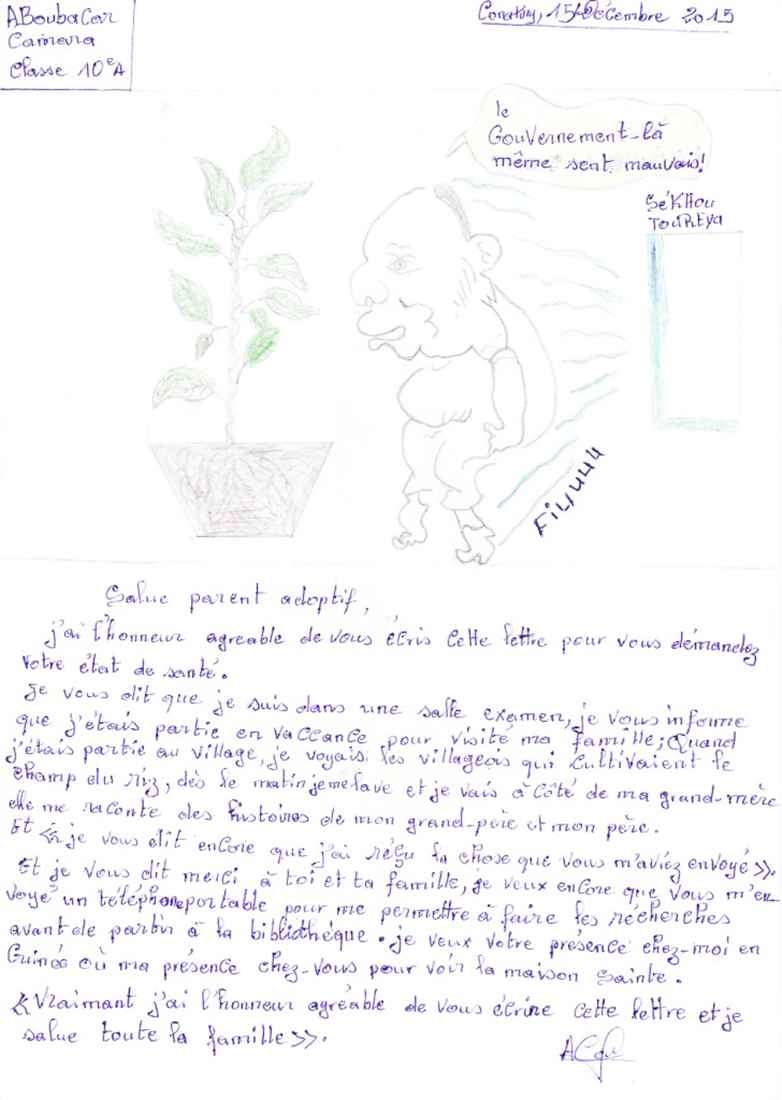 ABoubaCar
Camera
Classe 10e A
Conakry, 15 Décembre 2015
le
Gouvernement-là
même sent mauvais!
SéKHou
TouREya
Fiiuuuu
Salue parent adoptif,
j'ai l'honneur agreable de vous écris cette lettre pour vous démandez
votre état de santé.
Je vous dit que je suis dans une salle examen, je vous informe
que j'étais partie en vaccance pour visité ma famille; Quand
j'étais partie au village, je voyais les villageois qui cultivaient le
champ du riz, dès le matin je me lave et je vais à côté de ma grand-mère
elle me raconte des histoires de mon grand-père et mon père.
Et je vous dit encore que j'ai réçu la chose que vous m'aviez envoyé >>.
Et je vous dit merci à toi et ta famille, je veux encore que vous m'en-
voyé un téléphone portable pour me permettre à faire les récherches
avant de partir à la bibliothéque. je veux votre présence chez-moi en
Guinée où ma présence chez-vous pour voir la maison sainte.
<< Vraimant j'ai l'honneur agréable de vous écrire cette lettre et je
salue toute la famille >>.